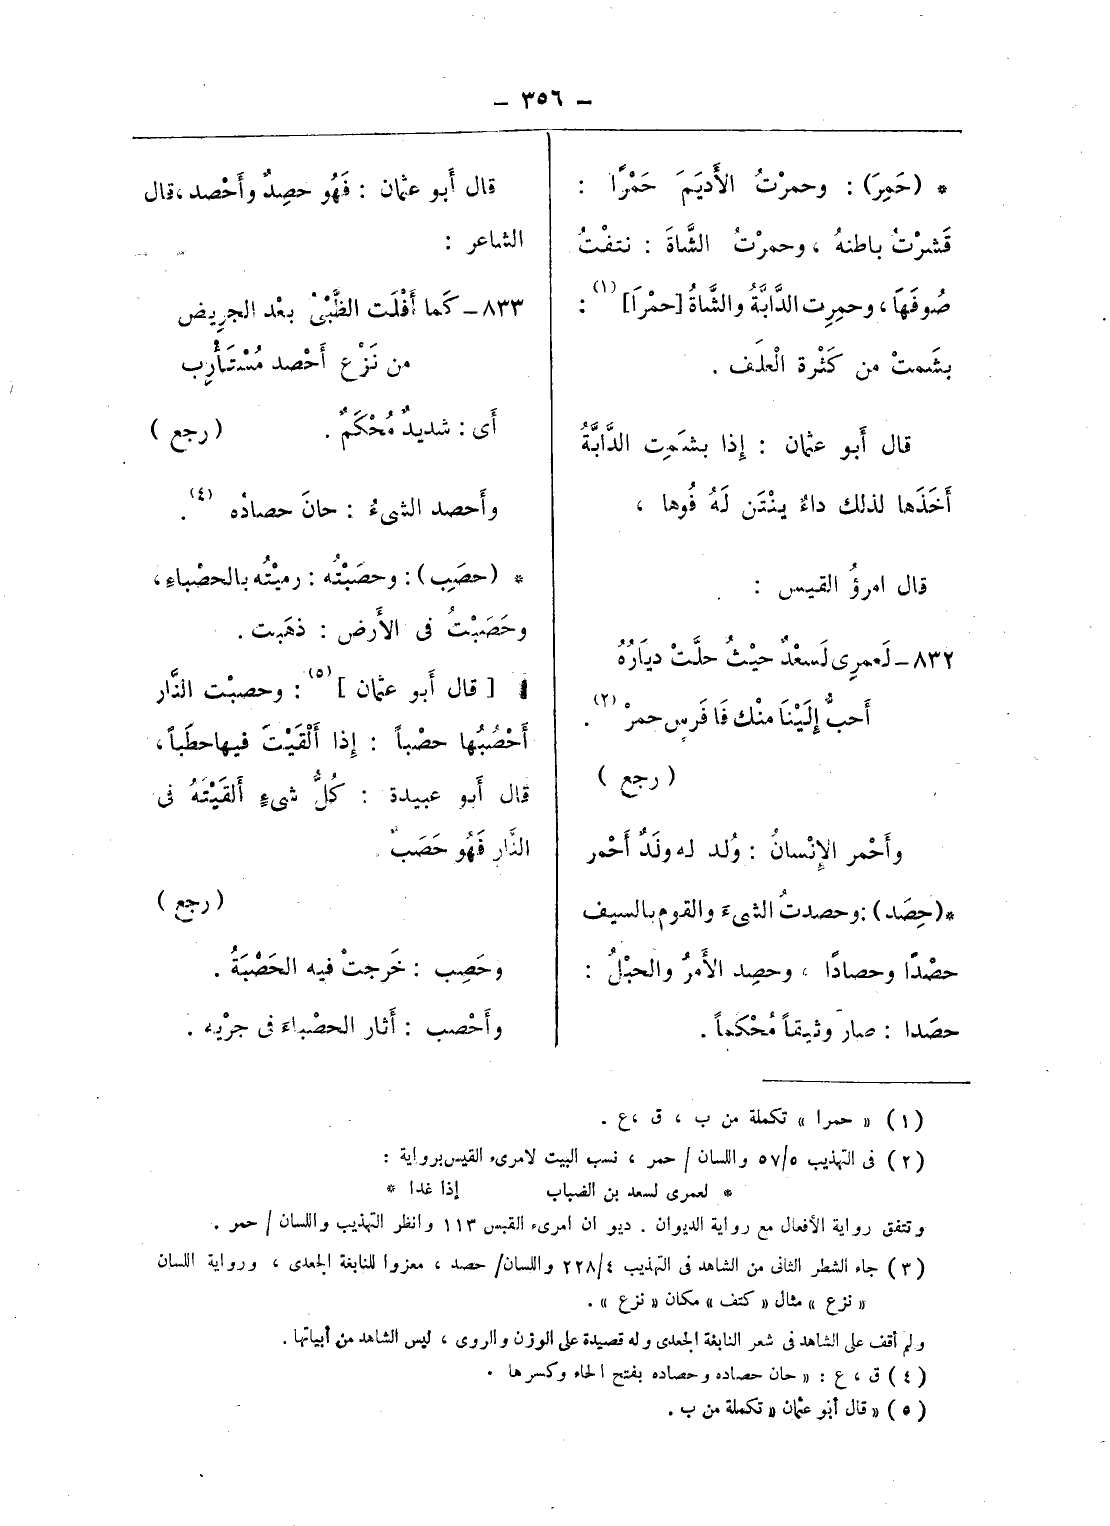 – ٣٥٦ –
* (حَمِرَ) : وحمرْتُ الأَديَمَ حَمْرًا :
قَشرْتُ باطنهُ ، وحمرْتُ الشَّاةَ : نتفْتُ
صُوفَهَا ، وحمِرِت الدَّابَّةُ والشَّاةُ [حمْرَا] (١) :
بشَمتْ من كَثْرة الْعلَف .
قال أَبو عثمان : إذا بشَمِت الدَّابَّةُ
أَخَذَها لذلك داءٌ ينْتَن لَهُ فُوها ،
قال امرؤُ القيس :
٨٣٢ – لَعمرِى لَسعْدٌ حيْثُ حلَّتْ ديَارُهُ
أَحبُّ إلَيْنَا منْك فَا فَرسٍ حمرْ (٢) .
( رجع )
وأَحْمر الإِنْسانُ : وُلد له ولَدٌ أَحْمر
*(حِصَد) : وحصدتُ الشىءَ والقوم بالسيف
حصْدًا وحصادًا ، وحصِد الأَمرُ والحبْلُ :
حصَدا : صار وثيقاً مُحْكَماً .
قال أَبو عثمان : فَهُو حصِدٌ وأَحْصد ، قال
الشاعر :
٨٣٣ – كَما أَفْلَت الظَّبْىُ بعْد الجرِيض
من نَزْع أَحْصد مُسْتَأْرِب
أَى : شديدٌ مُحْكَمٌ . ( رجع )
وأَحصد الشىءُ : حانَ حصادُه (٤) .
* (حصَب) : وحصَبْتُه : رميْتُه بالحصْباءِ ،
وحَصَبْتُ فى الأَرض : ذهَبت .
[ قال أَبو عثمان ] (٥) : وحصبْت النَّار
أَحْصُبُها حصْباً : إذا أَلْقَيْتَ فيها حطَباً ،
قال أَبو عبيدة : كُلُّ شىءٍ أَلقَيْتَهُ فى
النَّار فَهُو حَصَبٌ
( رجع )
وحَصِب : خَرجتْ فيه الحَصْبَةُ .
وأَحْصب : أَثار الحصْباءَ فى جرْيه .
(١) « حمرا » تكملة من ب ، ق ، ع .
(٢) فى التهذيب ٥/٥٧ واللسان / حمر ، نسب البيت لامرىء القيس برواية :
* لعمرى لسعد بن الضباب إذا غدا *
وتتفق رواية الأفعال مع رواية الديوان . ديوان امرىء القيس ١١٣ وانظر التهذيب واللسان / حمر .
(٣) جاء الشطر الثانى من الشاهد فى التهذيب ٤/٢٢٨ واللسان/ حصد ، معزوا للنابغة الجعدى ، ورواية اللسان
« نزع » مثال « كتف » مكان « نزع » .
ولم أقف على الشاهد فى شعر النابغة الجعدى وله قصيدة على الوزن والروى ، ليس الشاهد من أبياتها .
(٤) ق ، ع : « حان حصاده وحصاده بفتح الحاء وكسرها .
(٥) « قال أبو عثمان » تكملة من ب .